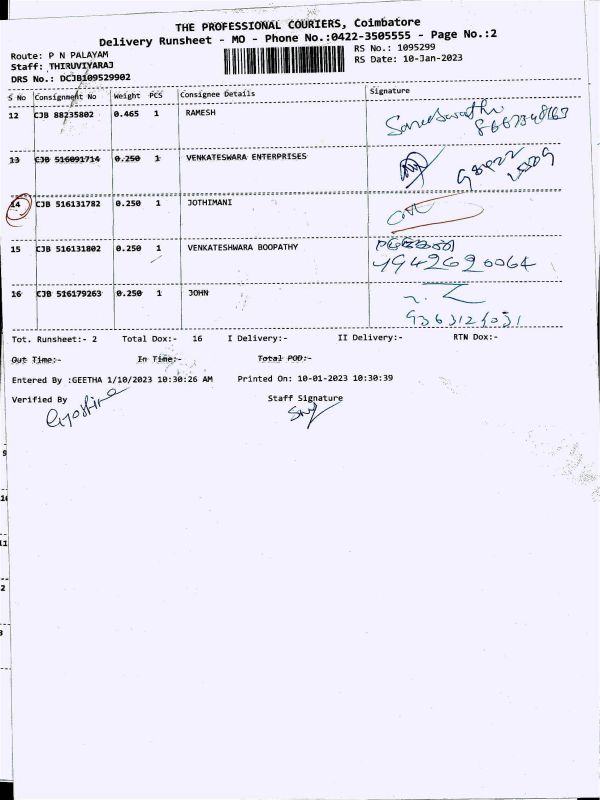 THE PROFESSIONAL COURIERS, Coimbatore
Delivery Runsheet - MO - Phone No.:0422-3505555 - Page No.:2
Route: P N PALAYAM
RS No.: 1095299
Staff: THIRUVIYARAJ
RS Date: 10-Jan-2023
DRS No.: DCJB109529902
S No Consignment No Weight PCS Consignee Details Signature
12 CJB 88235802 0.465 1 RAMESH
13 CJB 516091714 0.250 1 VENKATESWARA ENTERPRISES
14 CJB 516131782 0.250 1 JOTHIMANI
15 CJB 516131802 0.250 1 VENKATESHWARA BOOPATHY
9942620064
16 CJB 516179263 0.250 1 JOHN
Tot. Runsheet:- 2 Total Dox:- 16 I Delivery:- II Delivery:- RTN Dox:-
Out Time:- In Time:- Total POD:-
Entered By :GEETHA 1/10/2023 10:30:26 AM Printed On: 10-01-2023 10:30:39
Verified By Staff Signature